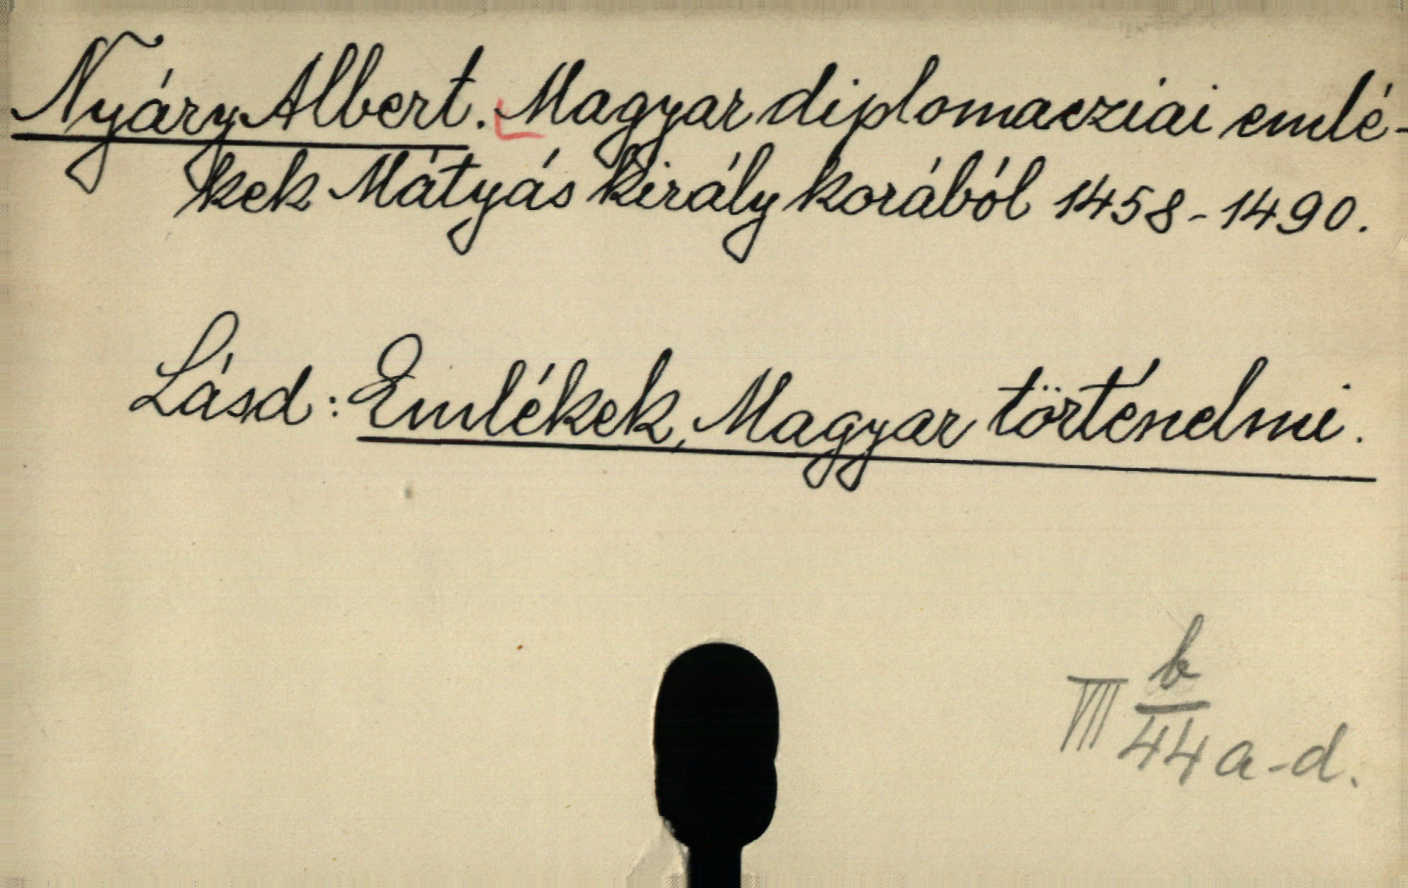 Nyáry Albert. Magyar diplomacziai emlé-
kek Mátyás király korából 1458-1490.
Lásd: Emlékek, Magyar történelmi.
VIII b/44 a-d.